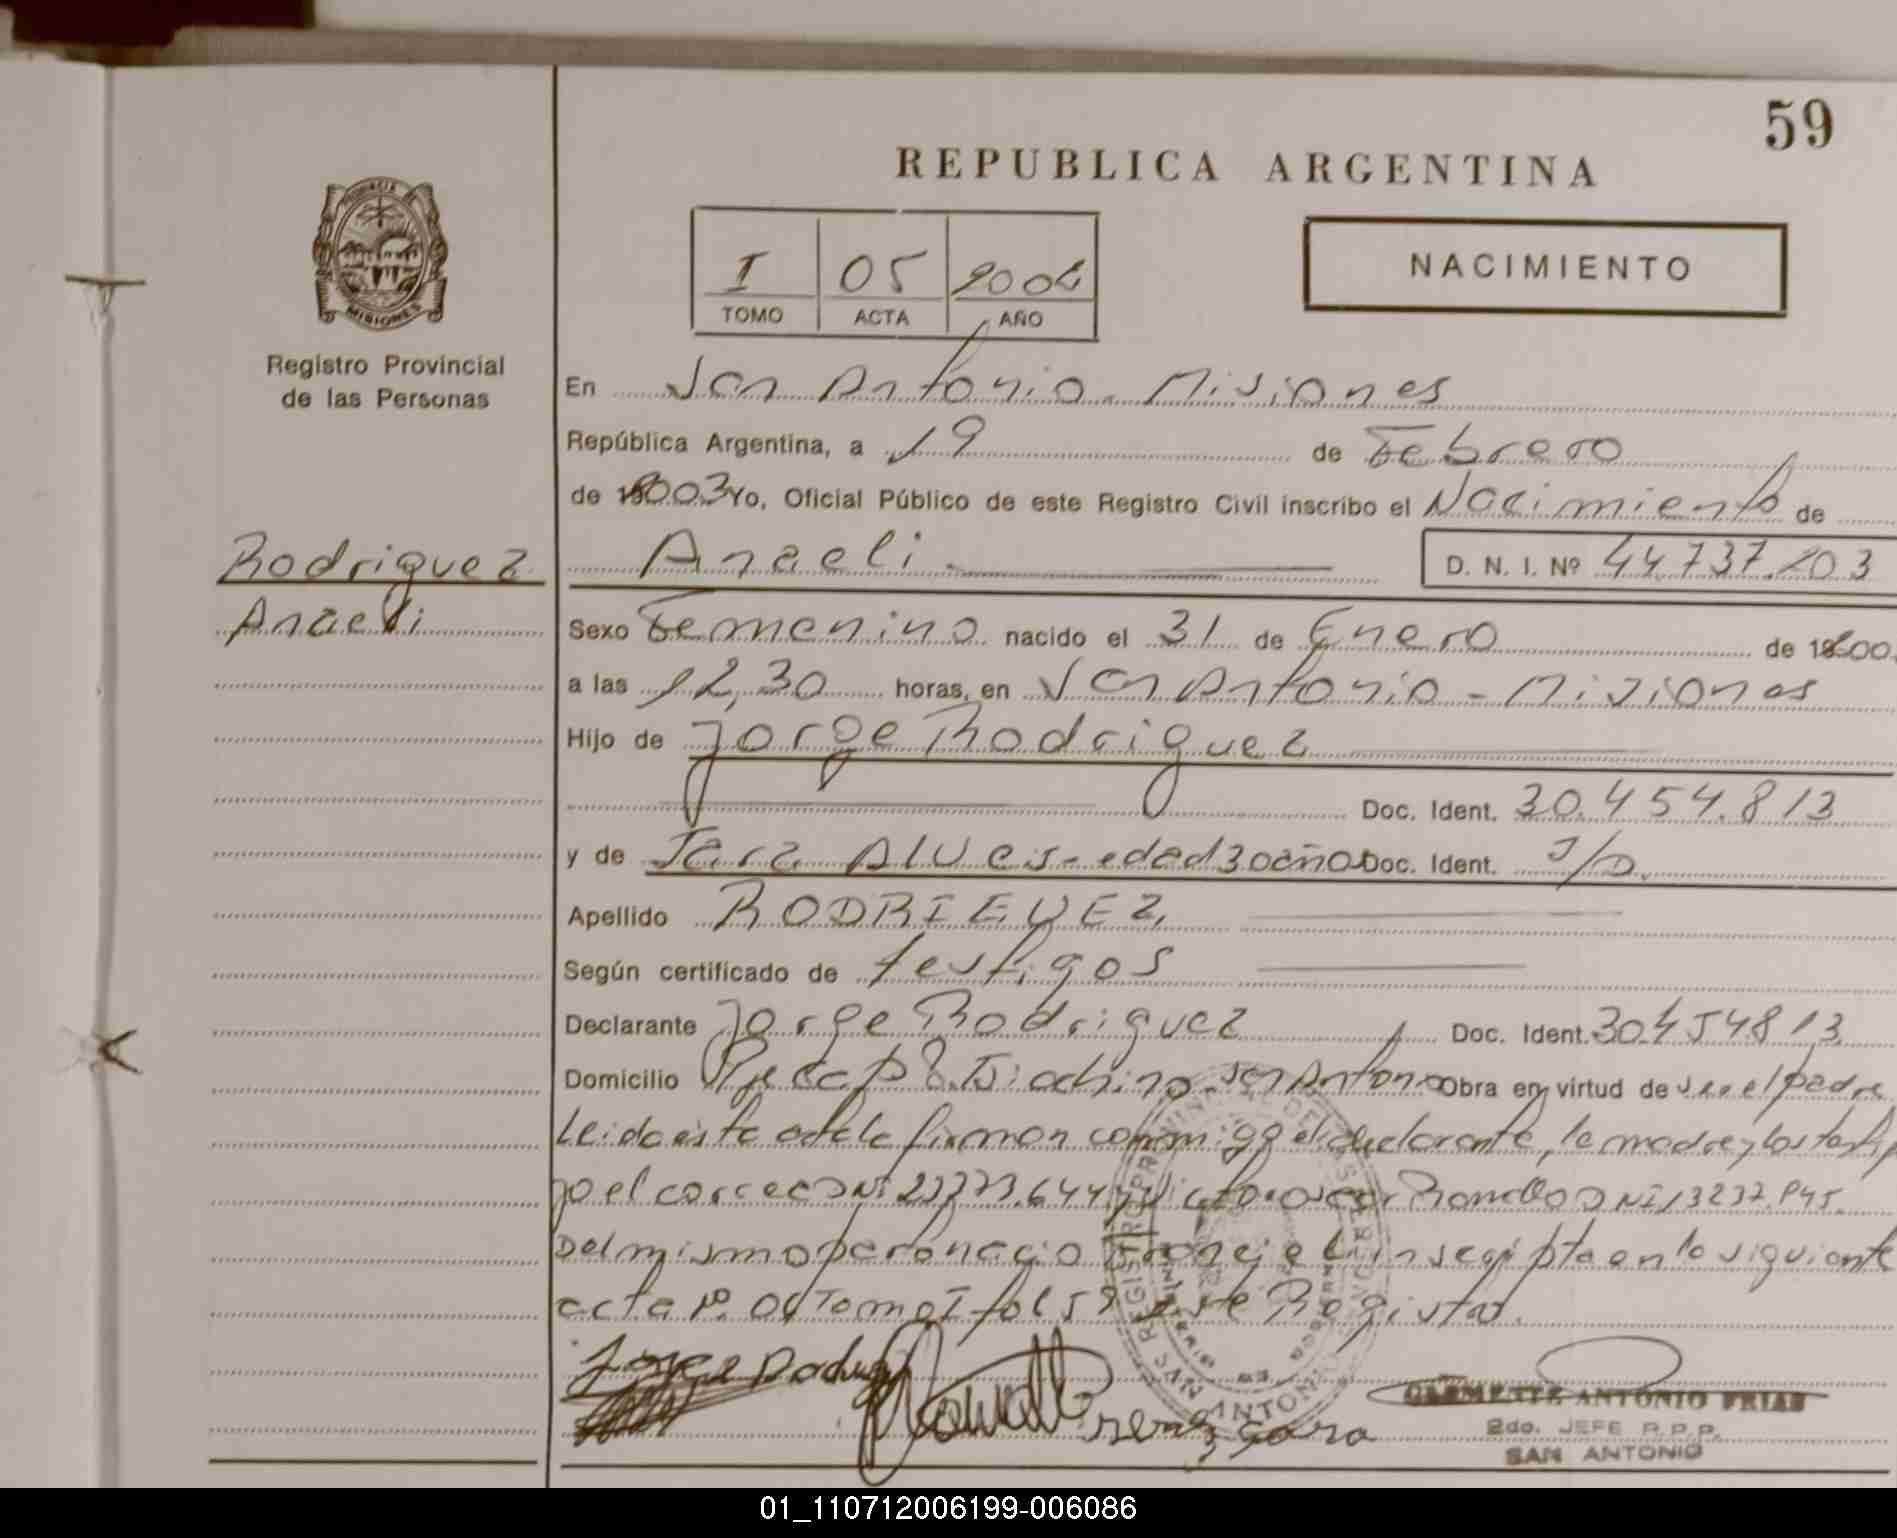 59
REPUBLICA ARGENTINA
I 05
TOMO ACTA AÑO
NACIMIENTO
MISIONES
Registro Provincial
de las Personas
En San Antonio - Misiones
República Argentina, a 19 de Febrero
de 2003 Yo, Oficial Público de este Registro Civil inscribo el Nacimiento de
Rodriguez
Anaeli D. N. I. Nº 44.737.203
Anaeli
Sexo Femenino nacido el 31 de Enero de
a las 12,30 horas, en San Antonio - Misiones
Hijo de Jorge Rodriguez
Doc. Ident. 30.454.813
y de Jara Alves - edad 30 años Doc. Ident. S/D.
Apellido RODRIGUEZ
Según certificado de testigos
Declarante Jorge Rodriguez Doc. Ident. 30454813
Domicilio San Antonio Obra en virtud de ser el padre
Leida este acta la firman conmigo el declarante, la madre y los testi
DNI
Del mismo parto nacio inscripta en la siguiente
acta Nº Tomo I fol este Registro.
Irene Jara
CLEMENTE ANTONIO FRIAS
2do. JEFE R.P.P.
SAN ANTONIO
01_110712006199-006086